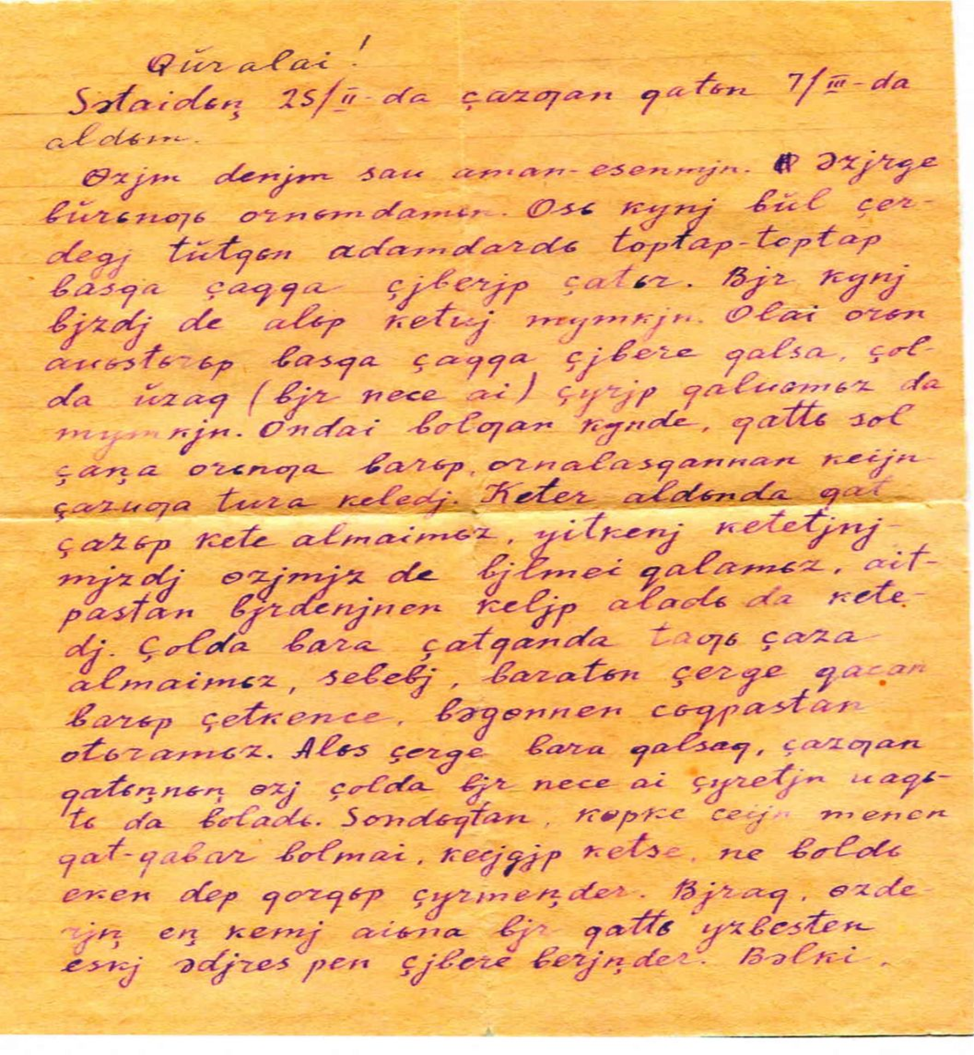 Qŭralai!
Sətaidьņ 25/II-da çazƣan qatьn 7/III-da
aldьm.
Ɵzjm denjm sau aman-esenmjn. Əzjrge
bŭrьnƣь ornьmdamьn. Osь kynj bŭl çer-
degj tŭtqьn adamdardь toptap-toptap
basqa çaqqa çjberjp çatьr. Bjr kynj
bjzdj de alьp ketuj mymkjn. Olai orьn
auьstьrьp basqa çaqqa çjbere qalsa, çol-
da ŭzaq (bjr nece ai) çyrjp qaluьmьz da
mymkjn. Ondai bolƣan kynde, qattь sol
çaņa orьnƣa barьp, ornalasqannan keijn
çazuƣa tura keledj. Keter aldьnda qat
çazьp kete almaimьz, yitkenj ketetjnj-
mjzdj ɵzjmjz de bjlmei qalamьz, ait-
pastan bjrdenjnen keljp aladь da kete-
dj. Çolda bara çatqanda taƣь çaza
almaimьz, sebebj, baratьn çerge qacan
barьp çetkence, bəgonnen cьqpastan
otьramьz. Alьs çerge bara qalsaq, çazƣan
qatьņnьņ ɵzj çolda bjr nece ai çyretjn uaqь-
tь da boladь. Sondьqtan, kɵpke ceijn menen
qat-qabar bolmai, kecjgjp ketse, ne boldь
eken dep qorqьp çyrmeņder. Bjraq, ɵzde-
rjņ eņ kemj aiьna bjr qattь yzbesten
eskj ədjres pen çjbere berjņder. Bəlki,